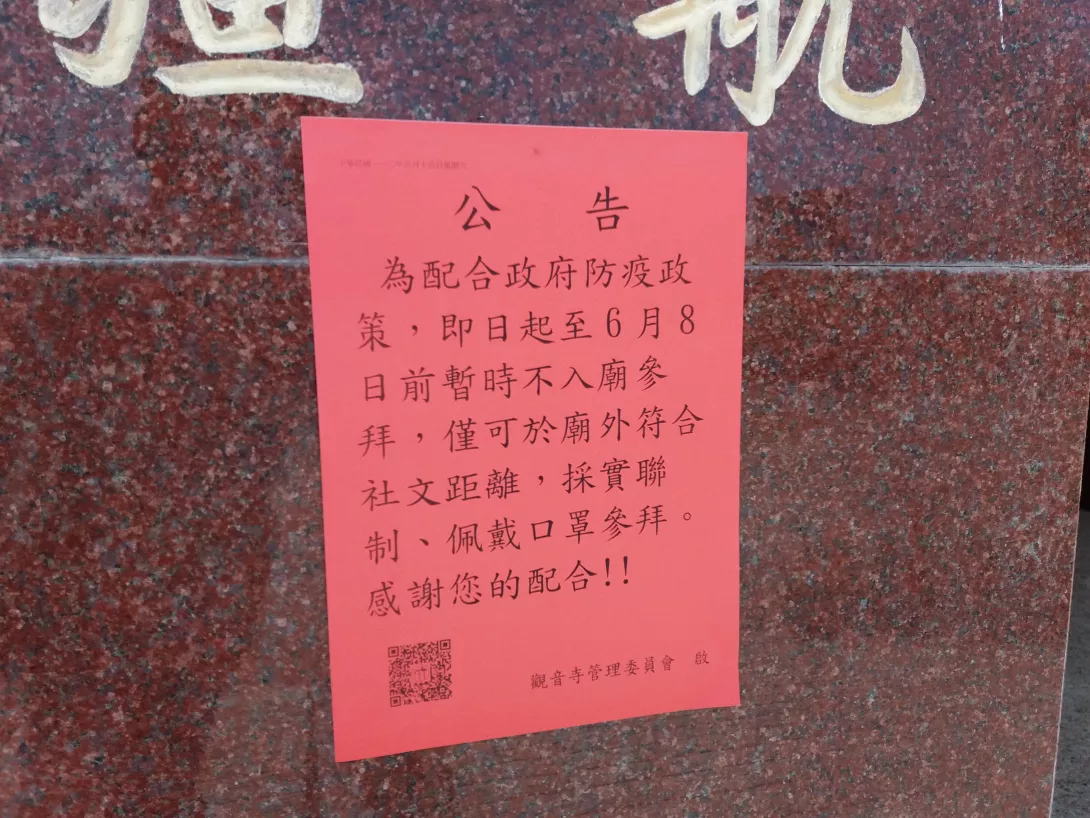 疆 航
公 告
為配合政府防疫政
策，即日起至6月8
日前暫時不入廟參
拜，僅可於廟外符合
社文距離，採實聯
制、佩戴口罩參拜。
感謝您的配合!!
觀音寺管理委員會 啟